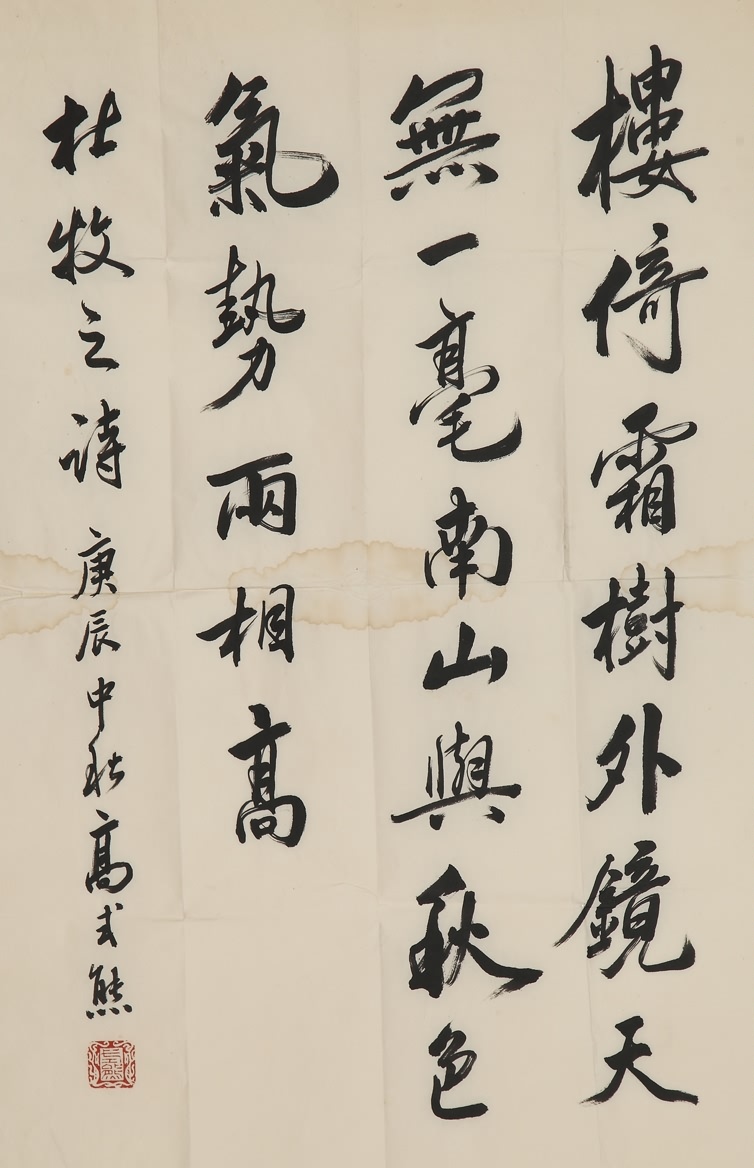 樓倚霜樹外鏡天
無一毫南山與秋色
氣勢兩相高
杜牧之詩 庚辰中秋高式熊